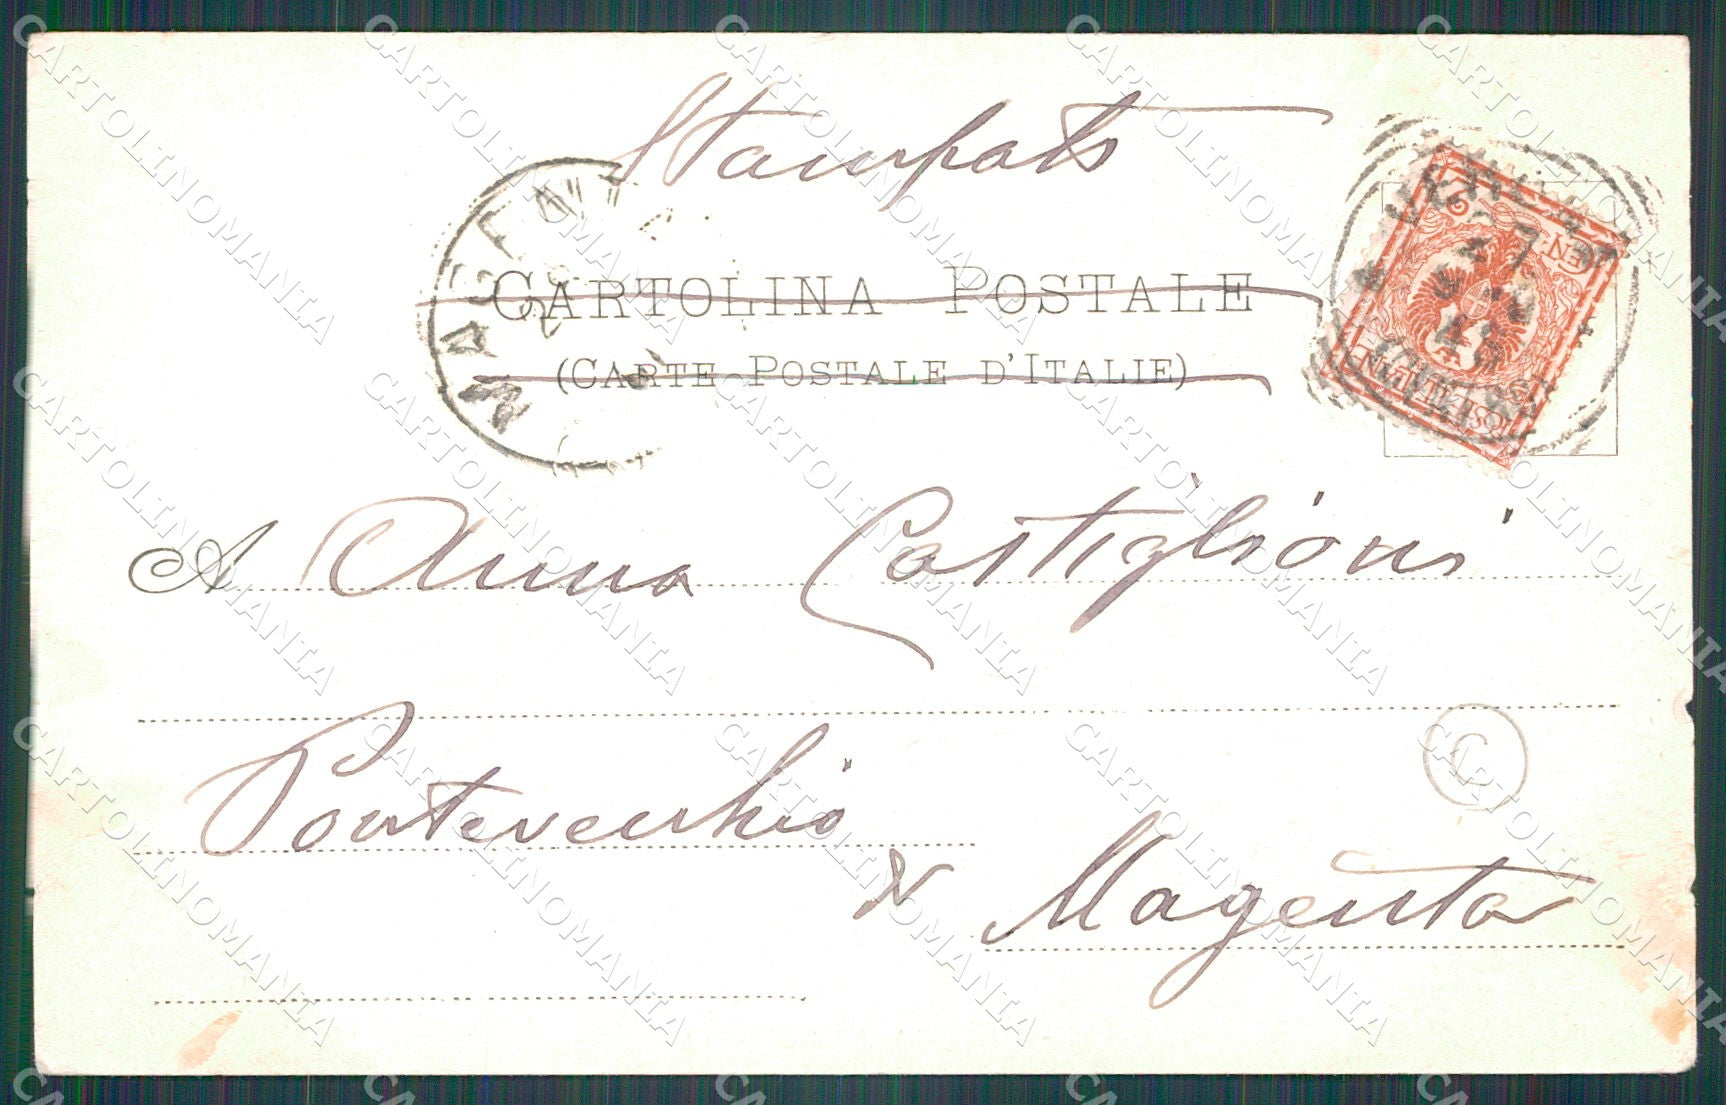 Stampats
CARTOLINA POSTALE
(CARTE POSTALE D'ITALIE)
MAGENTA
A Anna Castiglioni
Pontevecchio
Magenta
C
CARTOLINOMANIA